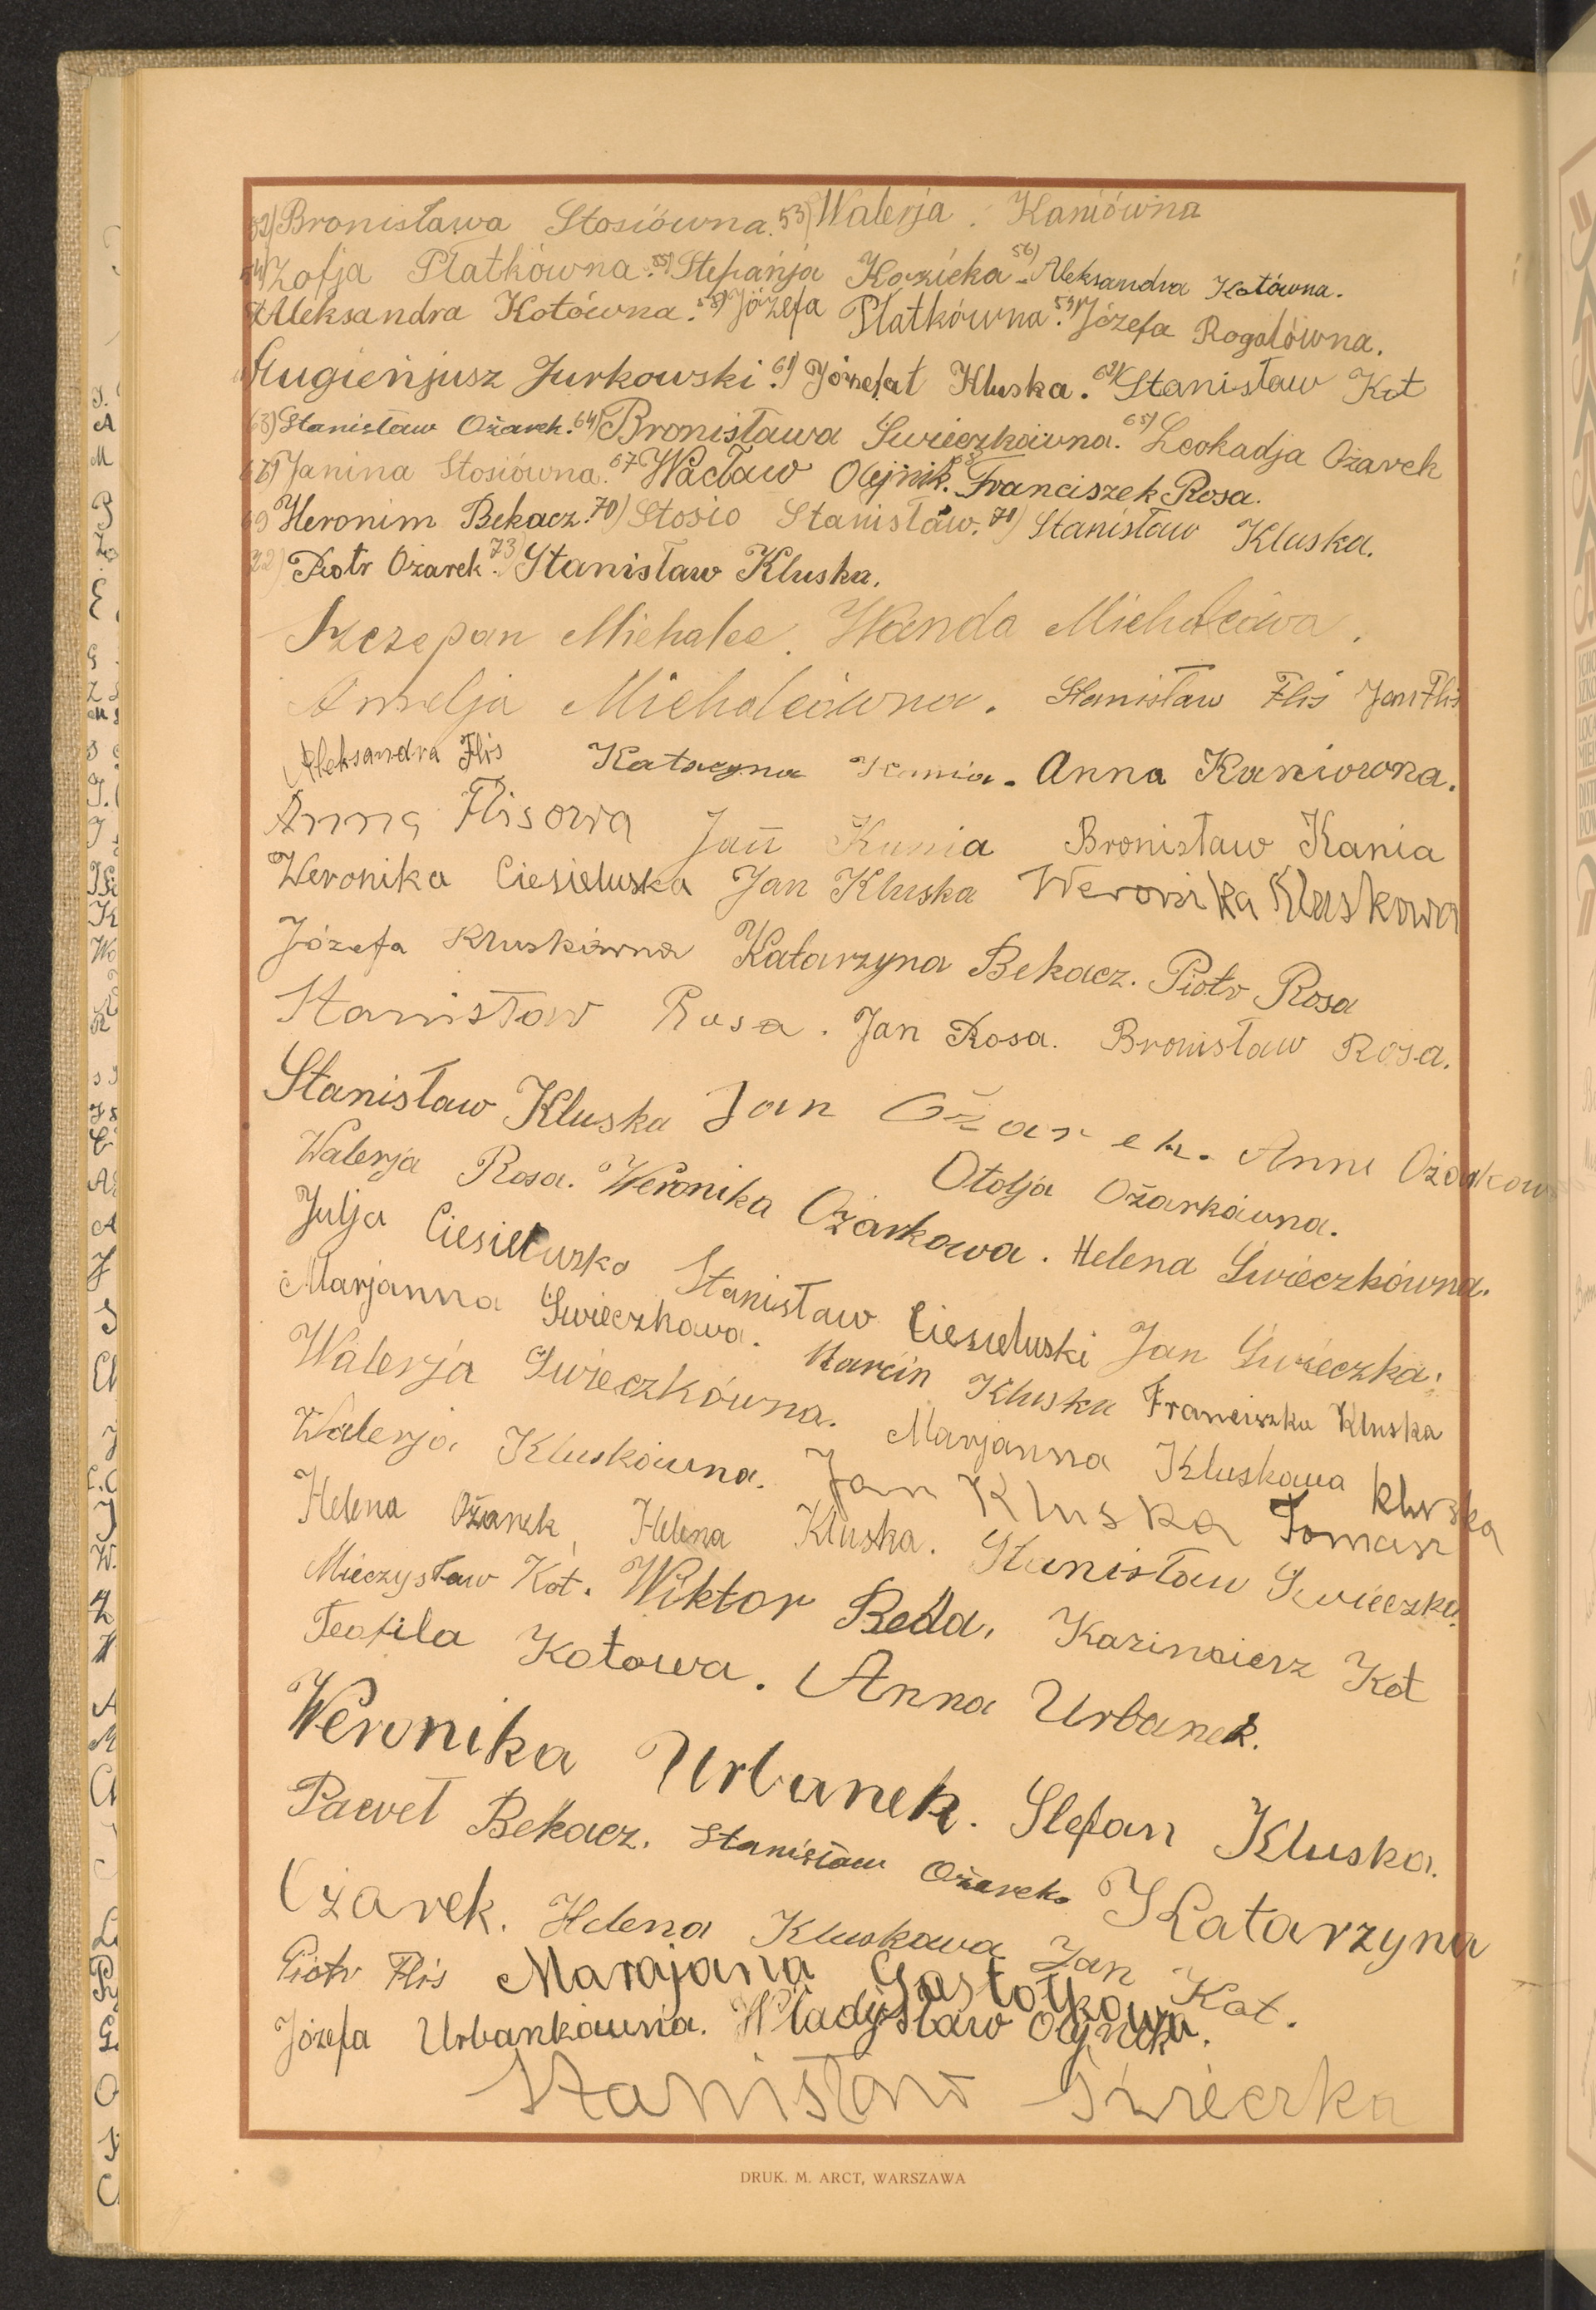 52) Bronisława Stosiówna. 53) Walerja Kaniówna
54) Zofja Płatkówna. 55) Stefanja Kozicka - 56) Aleksandra Kotówna.
57) Aleksandra Kotówna. 58) Józefa Płatkówna. 59) Józefa Rogalówna.
Eugienjusz Jurkowski. 61) Józefat Kluska. 62) Stanisław Kot
63) Stanisław Ożarek. 64) Bronisława Świeczkówna. 65) Leokadja Ożarek
66) Janina Stosiówna. 67 Wacław Olejnik. 68 Franciszek Rosa.
69 Heronim Bekacz. 70) Stosio Stanisław. 71) Stanisław Kluska.
72) Piotr Ożarek. 73) Stanisław Kluska.
Szczepan Michalec. Wanda Michalcówa.
Amelja Michalcówna. Stanisław Fliś Jan Fliś
Aleksandra Flis Katarzyna Kania. Anna Kaniowona.
Anna Flisowa Jan Kania Bronisław Kania
Weronika Ciesieluska Jan Kluska Weronika Kluskowa
Józefa Kluskówna Katarzyna Bekacz. Piotr Rosa
Stanisław Rosa. Jan Rosa. Bronisław Rosa.
Stanisław Kluska Jan Ożarek. Anna Ożarkow
Otolja Ożarkówna.
Walerja Rosa. Weronika Ożarkowa. Helena Świeczkówna.
Julja Ciesieluska Stanisław Ciesieluski Jan Świeczka.
Marjanna Świeczkowa. Marcin Kluska Franciszka Kluska
Walerja Świeczkówna. Marjanna Kluskowa
Walerja Kluskówna. Jan Kluska Tomasz Kluska
Helena Ożarek, Helena Kluska. Stanisław Świeczka.
Mieczysław Kot. Wiktor Beda, Kazimierz Kot
Teofila Kotowa. Anna Urbanek.
Weronika Urbanek. Stefan Kluska.
Paweł Bekacz. Stanisław Ożarek. Katarzyna
Ożarek. Helena Kluskowa Jan Kot.
Piotr Flis Marajana Gastołkowa.
Józefa Urbankówna. Władysław Olejnick
Stanisław Świeczka
DRUK. M. ARCT, WARSZAWA